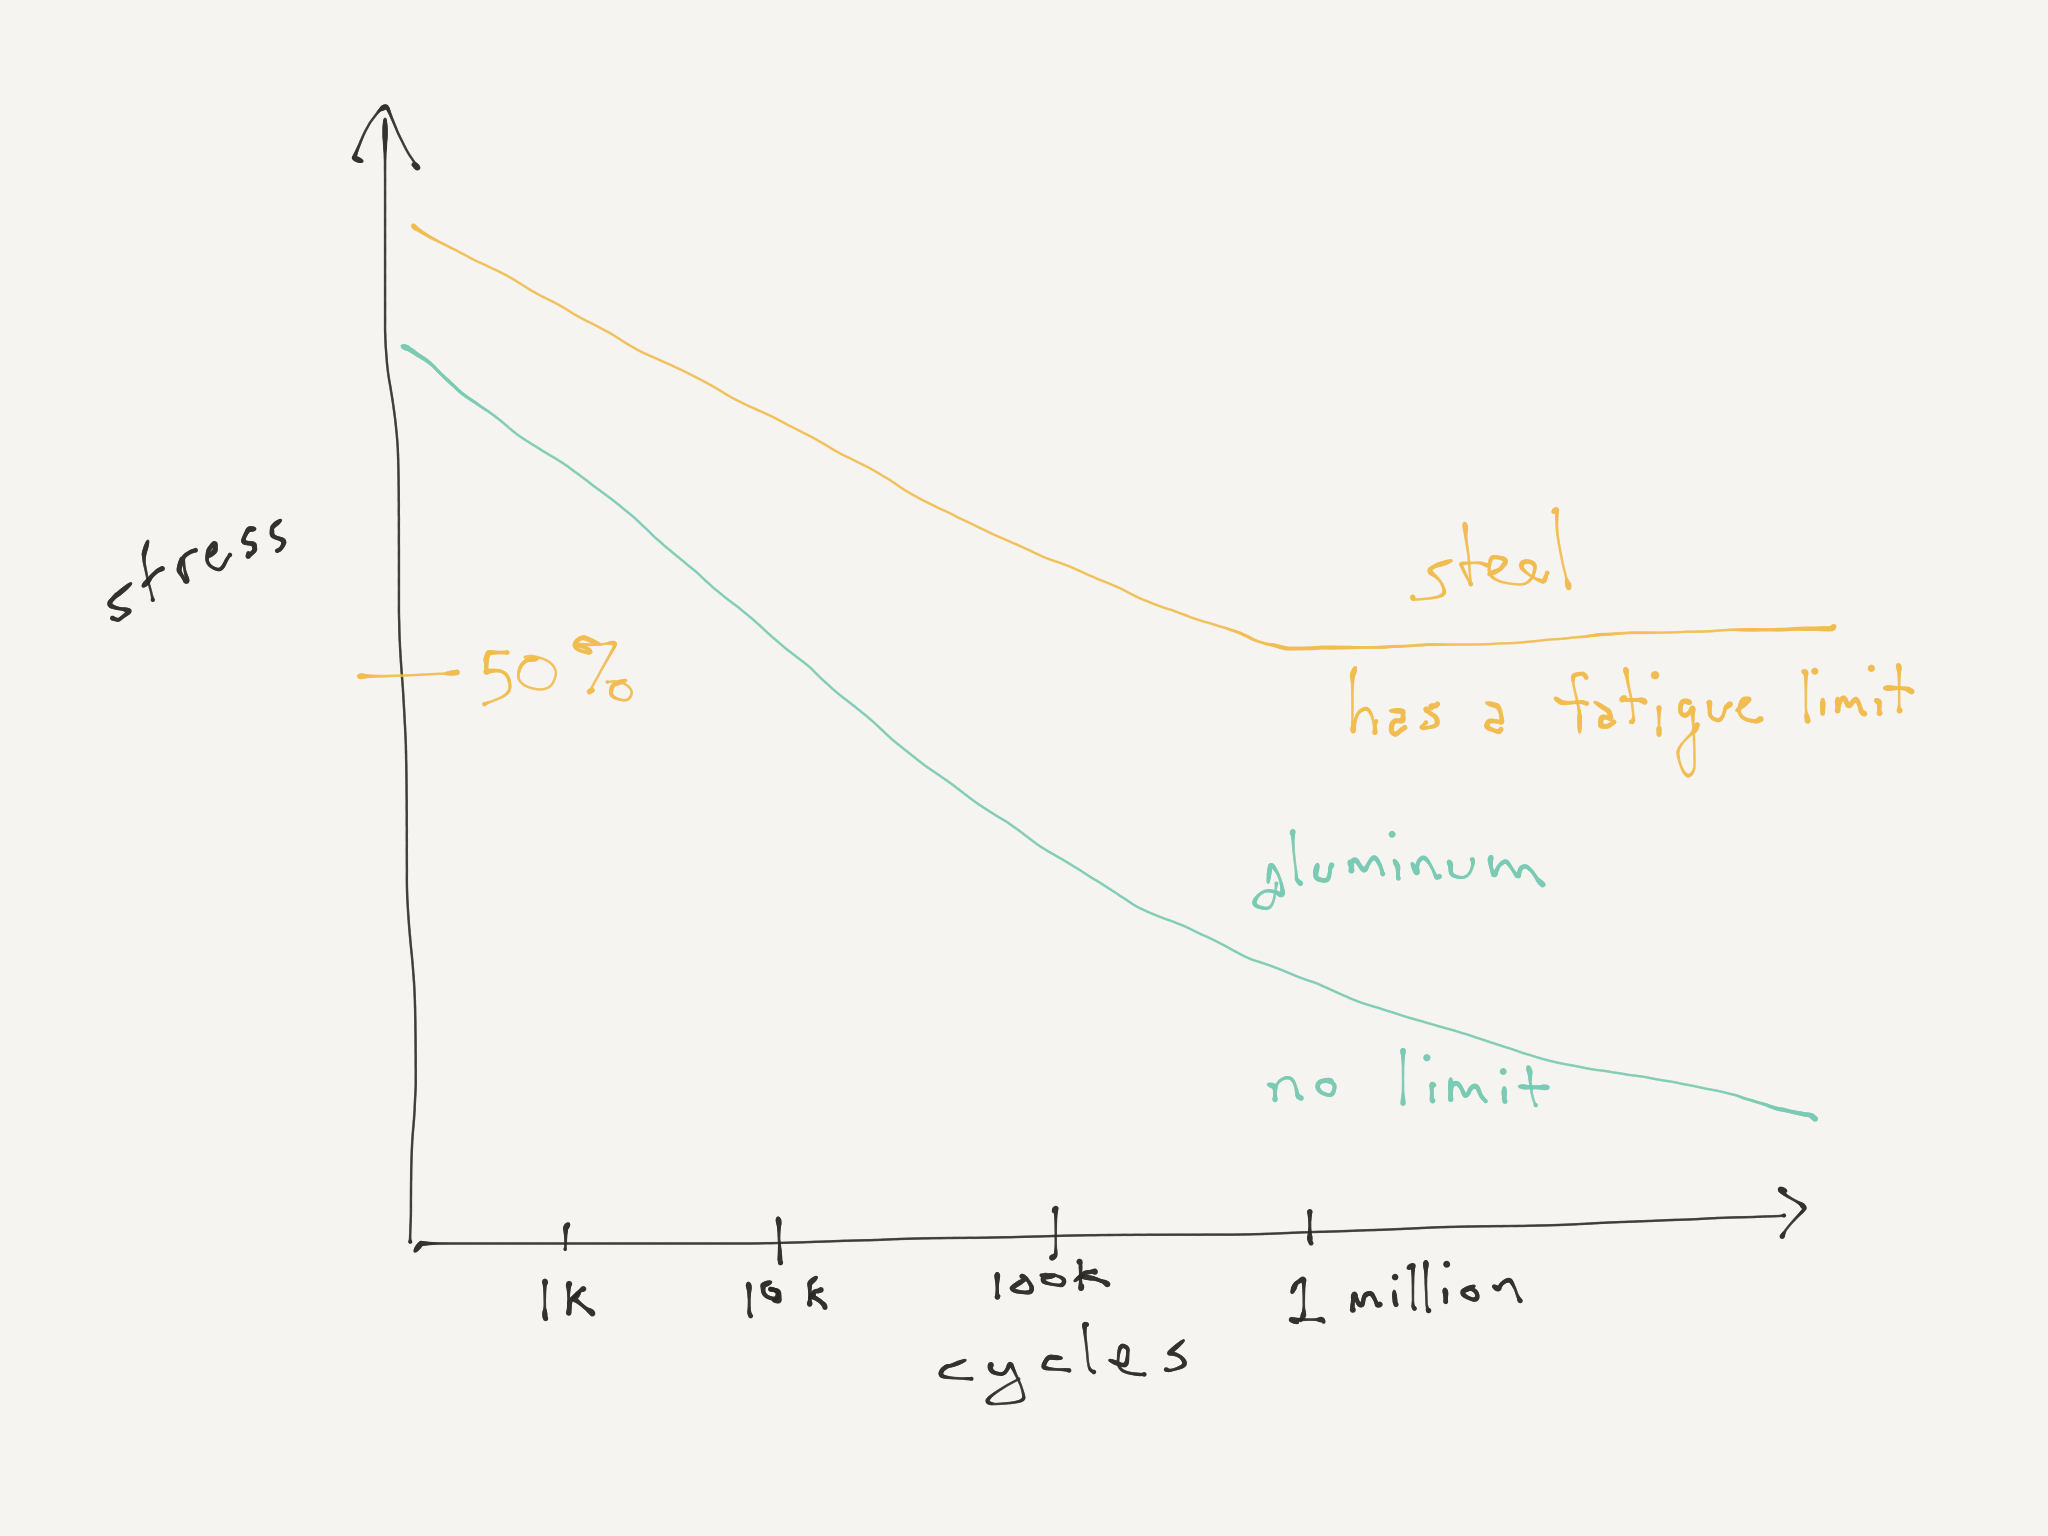 stress
50%
steel
has a fatigue limit
aluminum
no limit
1K
10K
100K
1 million
cycles